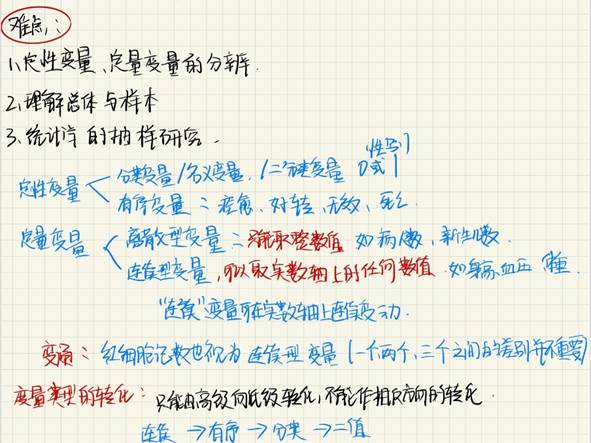 难点:
1、定性变量、定量变量的分辨.
2、理解总体与样本
3、统计学的抽样研究.
定性变量 分类变量/名义变量, /二分类变量 性别 0或1
有序变量: 痊愈、好转、无效、死亡
定量变量 离散型变量: 只能取整数值 如病人数, 新生儿数.
连续型变量, 可以取实数轴上的任何数值. 如身高, 血压, 体重
“连续”变量可在实数轴上连续变动.
变通: 红细胞记数也视为连续型变量 (一个两个, 三个之间的差别并不重要)
变量类型的转化: 只能由高级向低级转化, 不能作相反方向的转化.
连续 → 有序 → 分类 → 二值